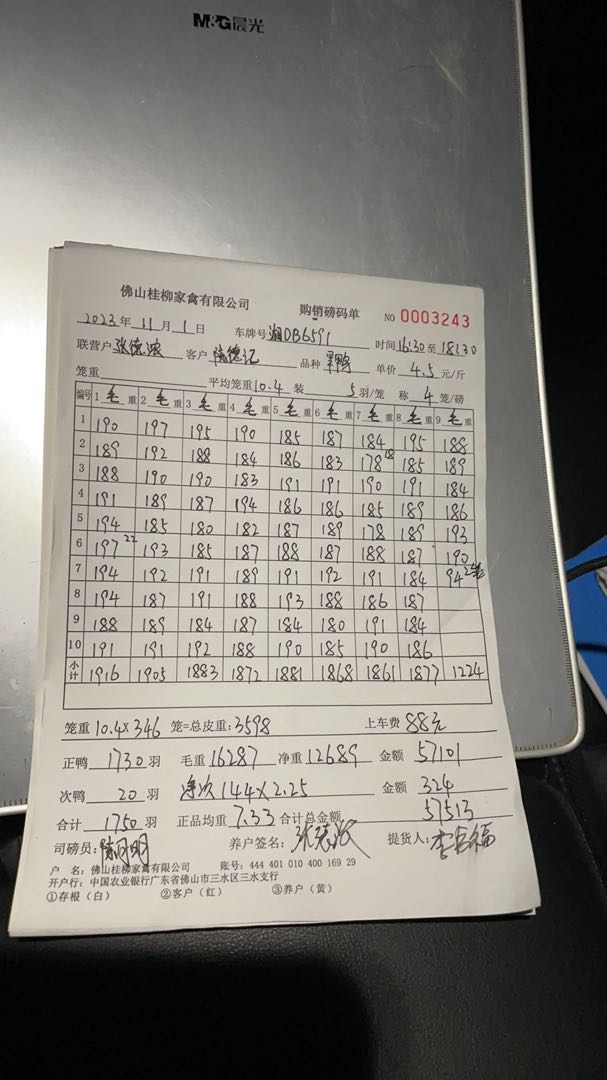 M&G晨光
佛山桂柳家禽有限公司 购销磅码单 NO 0003243
2023年 11月 1日 车牌号 湘DB6591 时间 16:30 至 18:30
联营户 张德浓 客户 陈德记 品种 单价 4.5 元/斤
笼重 平均笼重 10.4 装 5 羽/笼 称 4 笼/磅
编号 1 毛重 2 毛重 3 毛重 4 毛重 5 毛重 6 毛重 7 毛重 8 毛重 9 毛重
1 190 197 195 190 185 187 184 195 188
2 189 192 188 184 186 183 178 18 185 189
3 188 190 190 183 191 191 190 191 184
4 191 189 187 194 186 186 185 189 186
5 194 185 180 182 187 189 178 189 193
6 197 22 193 185 187 188 187 188 187 190
7 194 192 191 189 191 192 191 184 94 2笼
8 194 187 191 188 193 188 186 187
9 188 189 184 187 184 180 191 184
10 191 191 192 188 190 185 190 186
小计 1916 1905 1883 1872 1881 1868 1861 1877 1224
笼重 10.4×346 笼=总皮重: 3598 上车费 88元
正鸭 1730 羽 毛重 16287 净重 12689 金额 57101
次鸭 20 羽 净次 144×2.25 金额 324
合计 1750 羽 正品均重 7.33 合计总金额 57513
司磅员: 养户签名: 提货人:
户 名: 佛山桂柳家禽有限公司 账号: 444 401 010 400 169 29
开户行: 中国农业银行广东省佛山市三水区三水支行
①存根（白） ②客户（红） ③养户（黄）